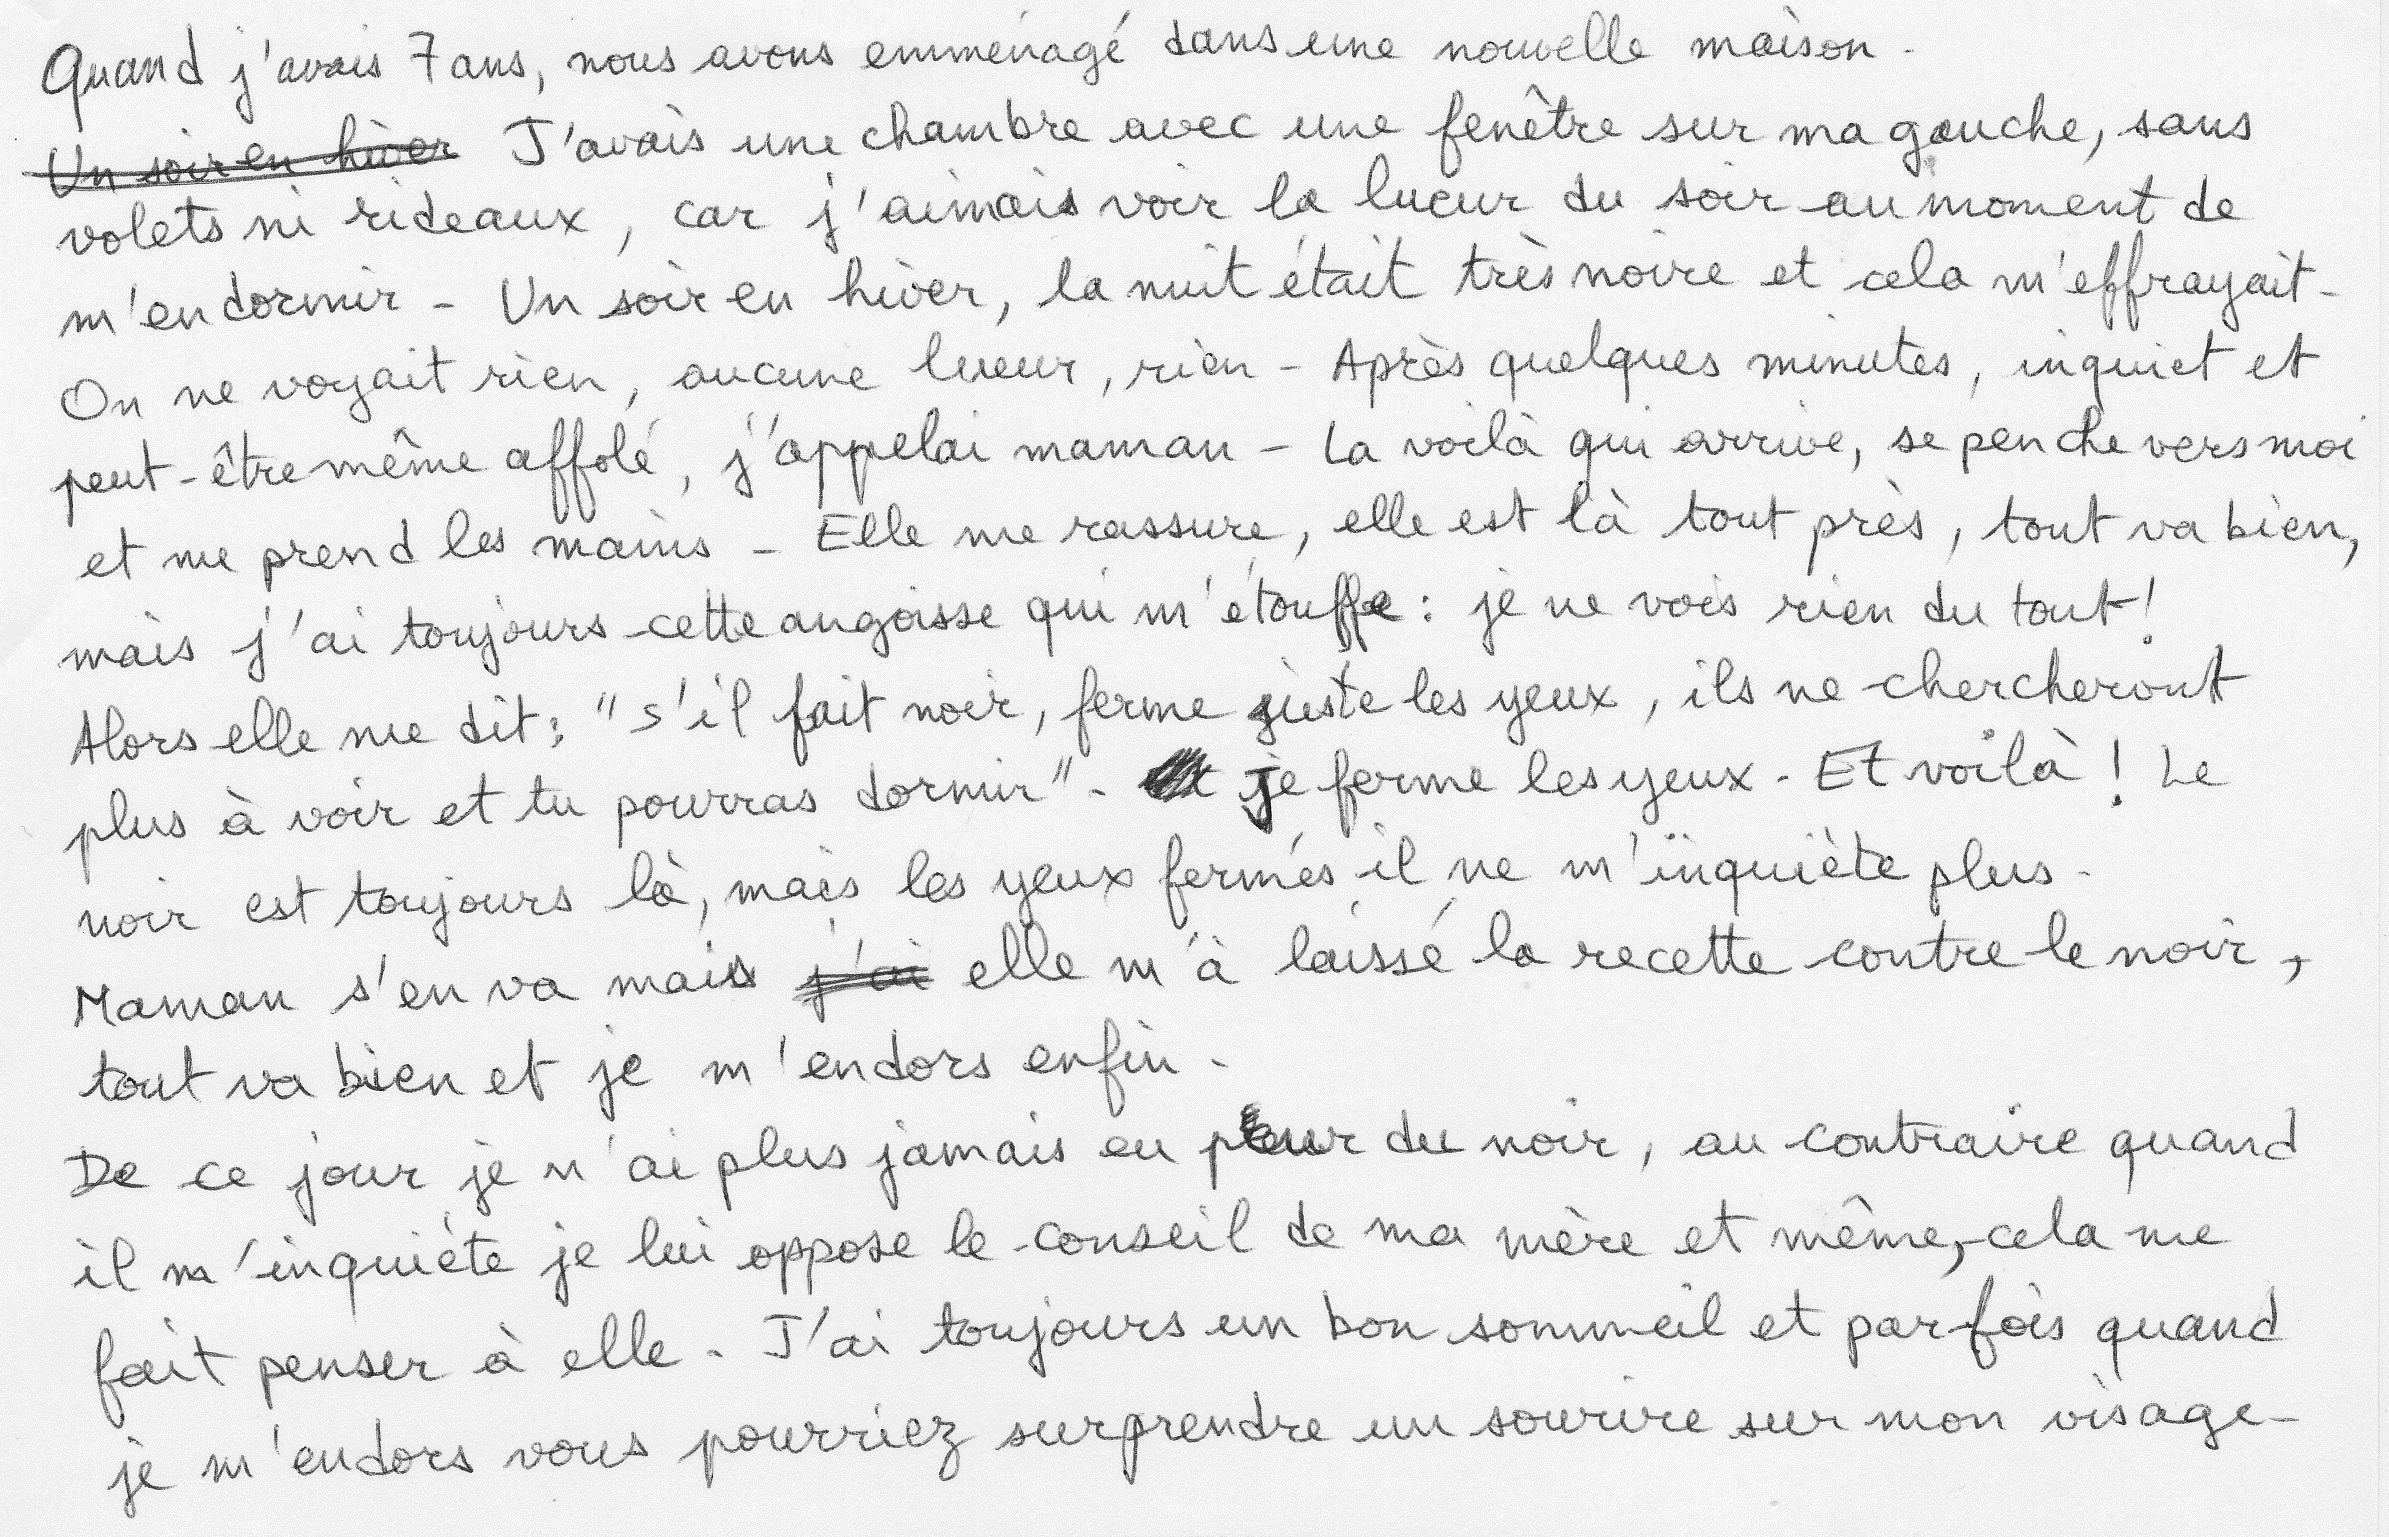 Quand j'avais 7 ans, nous avons emménagé dans une nouvelle maison.
Un soir en hiver J'avais une chambre avec une fenêtre sur ma gauche, sans
volets ni rideaux, car j'aimais voir la lueur du soir au moment de
m'endormir - Un soir en hiver, la nuit était très noire et cela m'effrayait -
On ne voyait rien, aucune lueur, rien - Après quelques minutes, inquiet et
peut-être même affolé, j'appelai maman - La voilà qui arrive, se penche vers moi
et me prend les mains - Elle me rassure, elle est là tout près, tout va bien,
mais j'ai toujours cette angoisse qui m'étouffe : je ne vois rien du tout !
Alors elle me dit : "s'il fait noir, ferme juste les yeux, ils ne chercheront
plus à voir et tu pourras dormir" - je ferme les yeux. Et voilà ! Le
noir est toujours là, mais les yeux fermés il ne m'inquiète plus.
Maman s'en va mais j'ai elle m'à laissé la recette contre le noir,
tout va bien et je m'endors enfin.
De ce jour je n'ai plus jamais eu peur du noir, au contraire quand
il m'inquiéte je lui oppose le conseil de ma mère et même, cela me
fait penser à elle. J'ai toujours un bon sommeil et parfois quand
je m'endors vous pourriez surprendre un sourire sur mon visage -